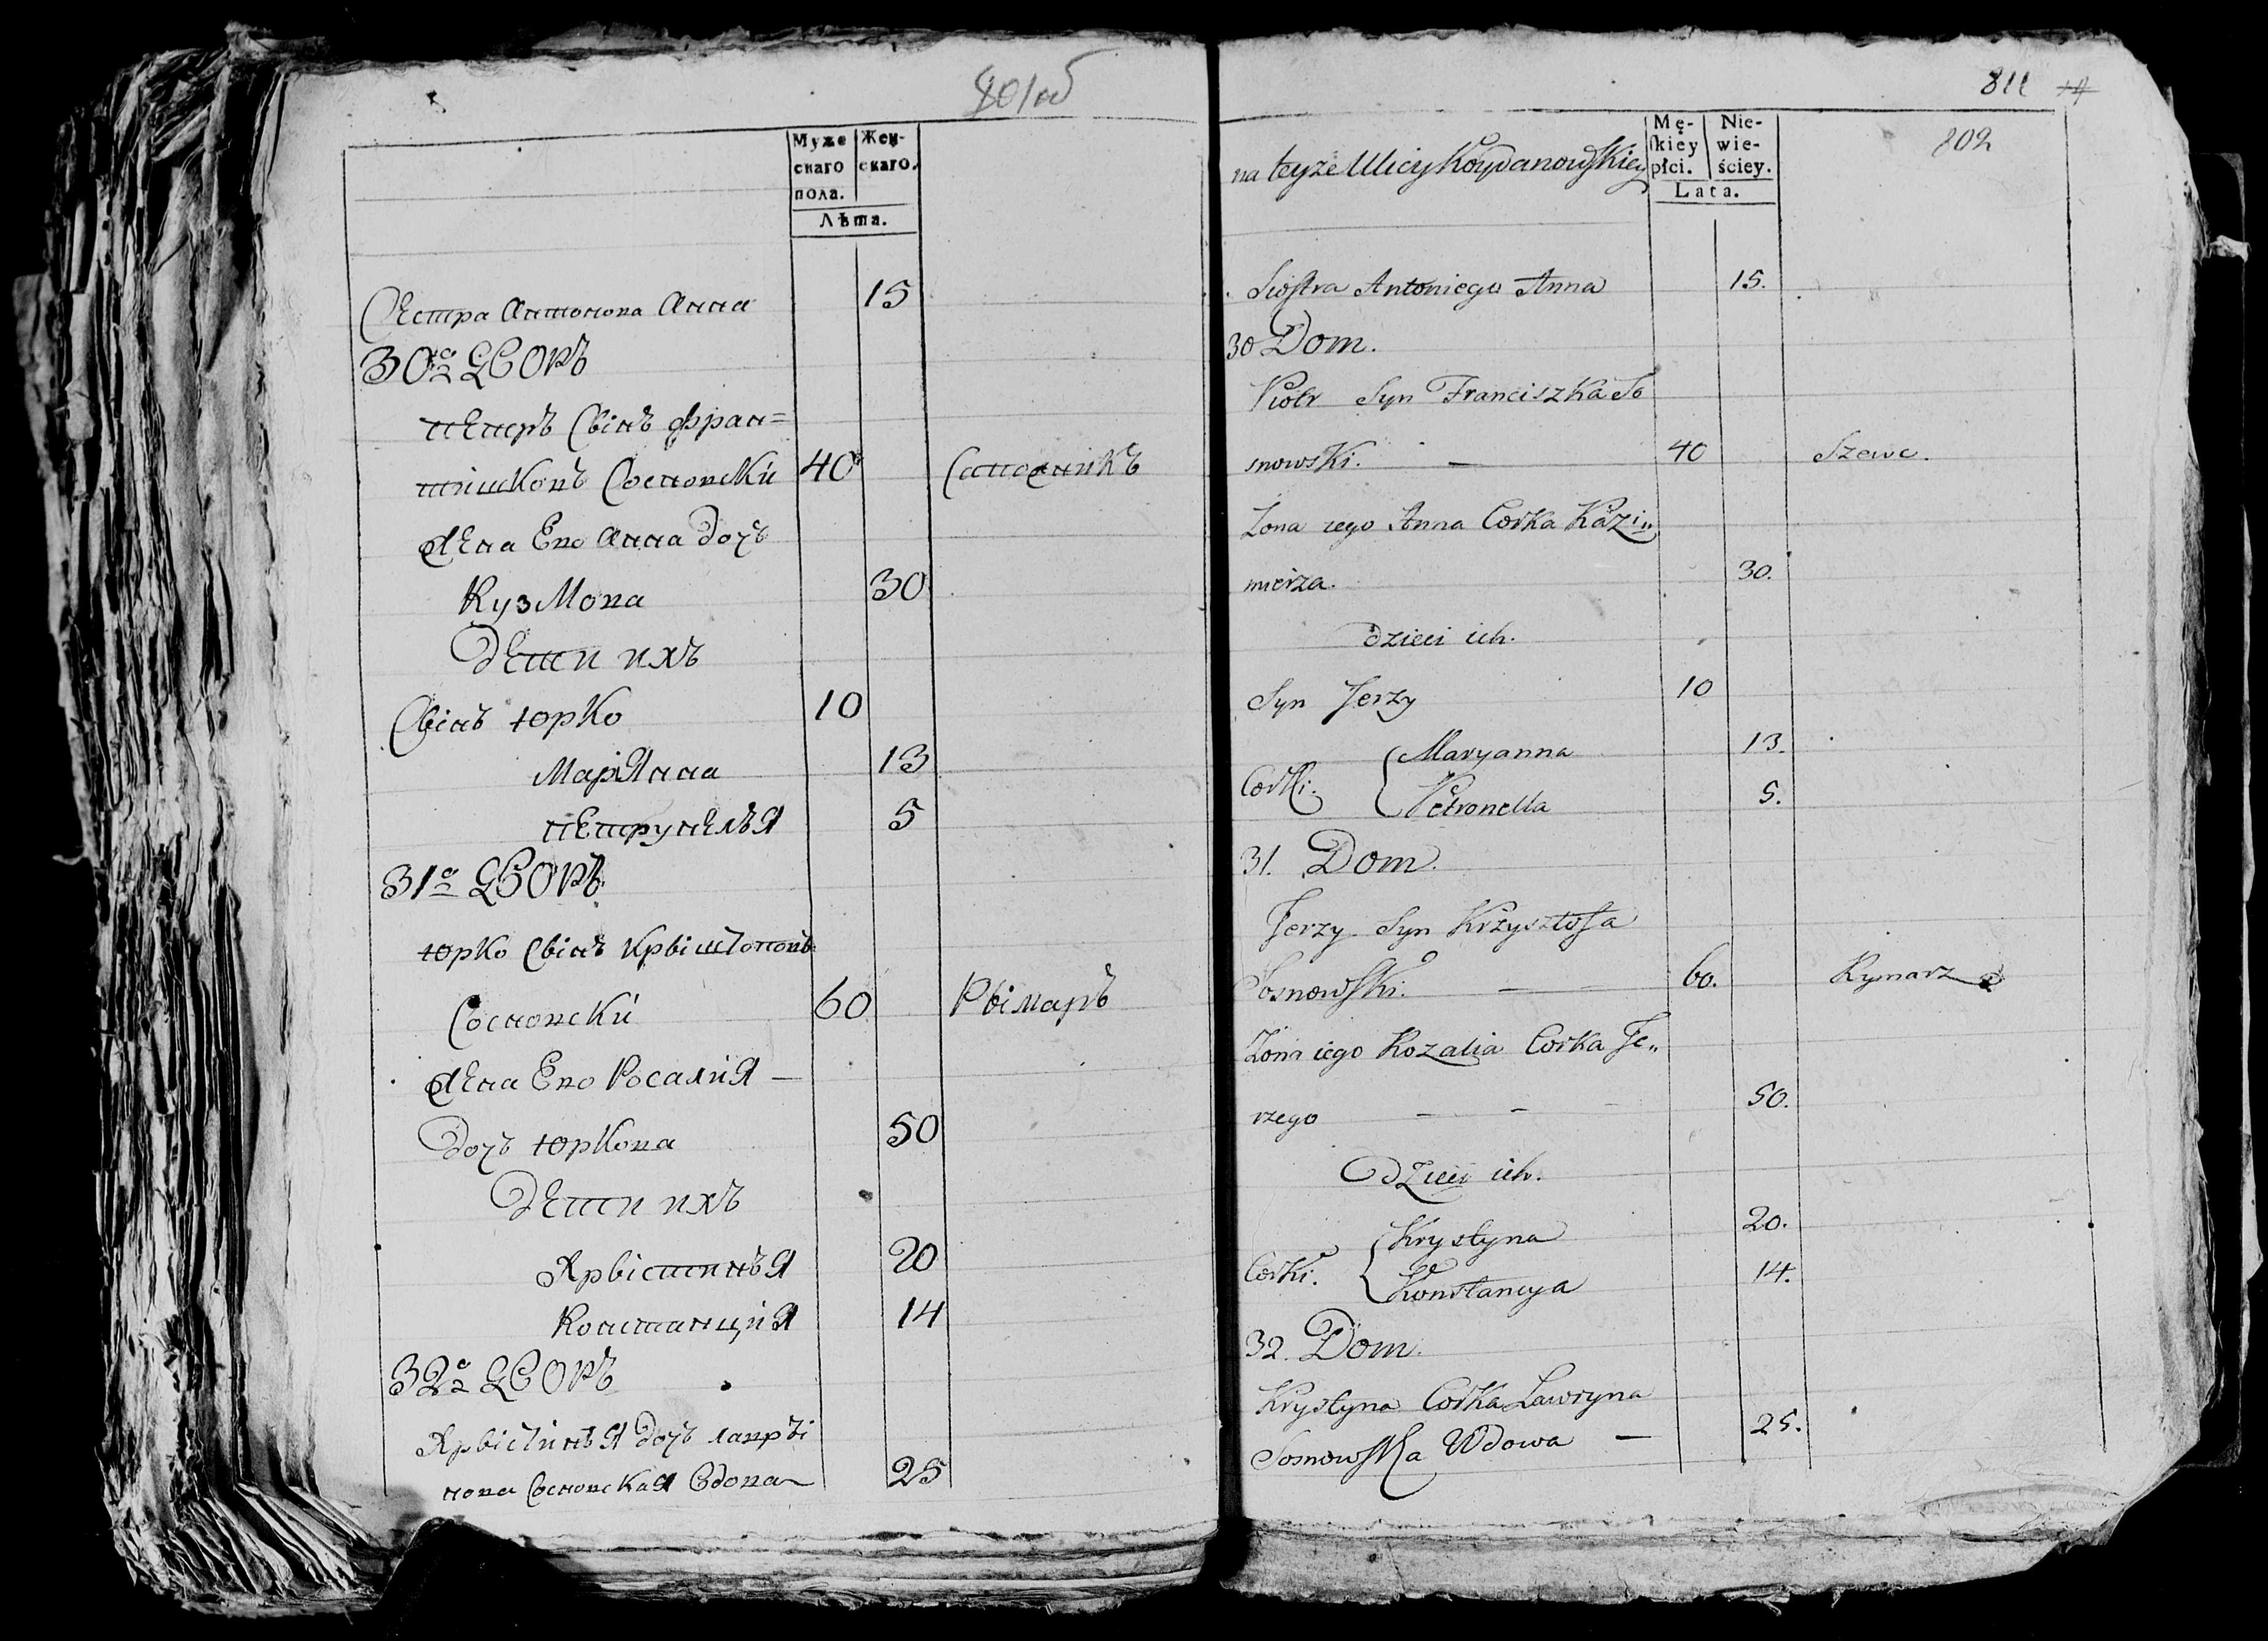 801 об
Муже
скаго
пола.
Жен-
скаго.
Лѣта.
Сестра Антонова Анна 15
30й Дворъ
Петръ Сынъ Фран=
тишковъ Сосновскій 40 Сапожникъ
Жена Его Анна дочь
Кузмова 30
Дети ихъ
Сынъ Юрко 10
Маріянна 13
Петрунелья 5
31й Дворъ
Юрко Сынъ Крыштоповъ
Сосновскій 60 Рымаръ
Жена Его Росалия —
Дочь Юркова 50
Дети ихъ
Крыстинья 20
Констанция 14
32й Дворъ
Крыстинья дочь лавры
нова Сосновская Вдова 25
811
802
na teyże Ulicy Koydanowskiey
Mę-
skiey
płci.
Nie-
wie-
ściey.
Lata.
Siostra Antoniego Anna 15.
30 Dom.
Piotr Syn Franciszka So
snowski. — 40 Szewc.
Żona iego Anna Corka Kazi„
mierza. 30.
dzieci ich.
Syn Jerzy 10
Corki. { Maryanna 13.
Petronella 5.
31. Dom.
Jerzy Syn Krzysztofa
Sosnowski. — 60. Rymarz
Żona iego Rozalia Corka Je„
rzego — — 50.
Dzieci ich.
Corki. { Krystyna 20.
Konstancya 14.
32. Dom.
Krystyna Corka Lawryna
Sosnowska Wdowa — 25.